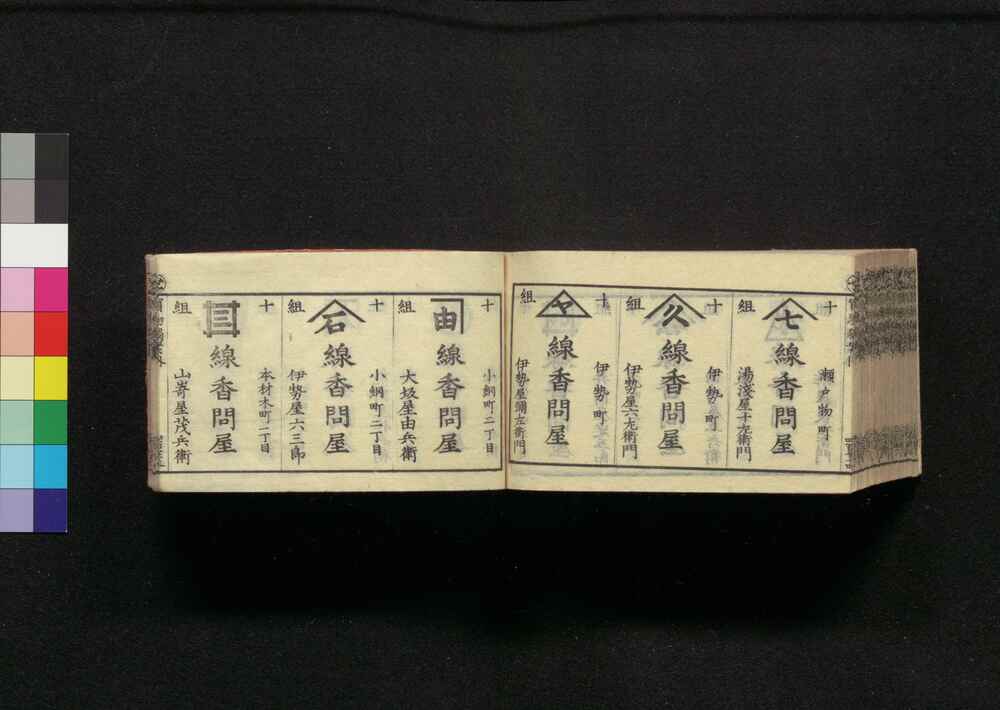 十組
七
線香問屋
瀬戸物町
湯淺屋十左衛門
十組
久
線香問屋
伊勢町
伊勢屋六左衛門
十組
ヤ
線香問屋
伊勢町
伊勢屋彌左衛門
十組
由
線香問屋
小網町二丁目
大坂屋由兵衛
十組
石
線香問屋
小網町二丁目
伊勢屋六三郎
十組
線香問屋
本材木町二丁目
山嵜屋茂兵衛